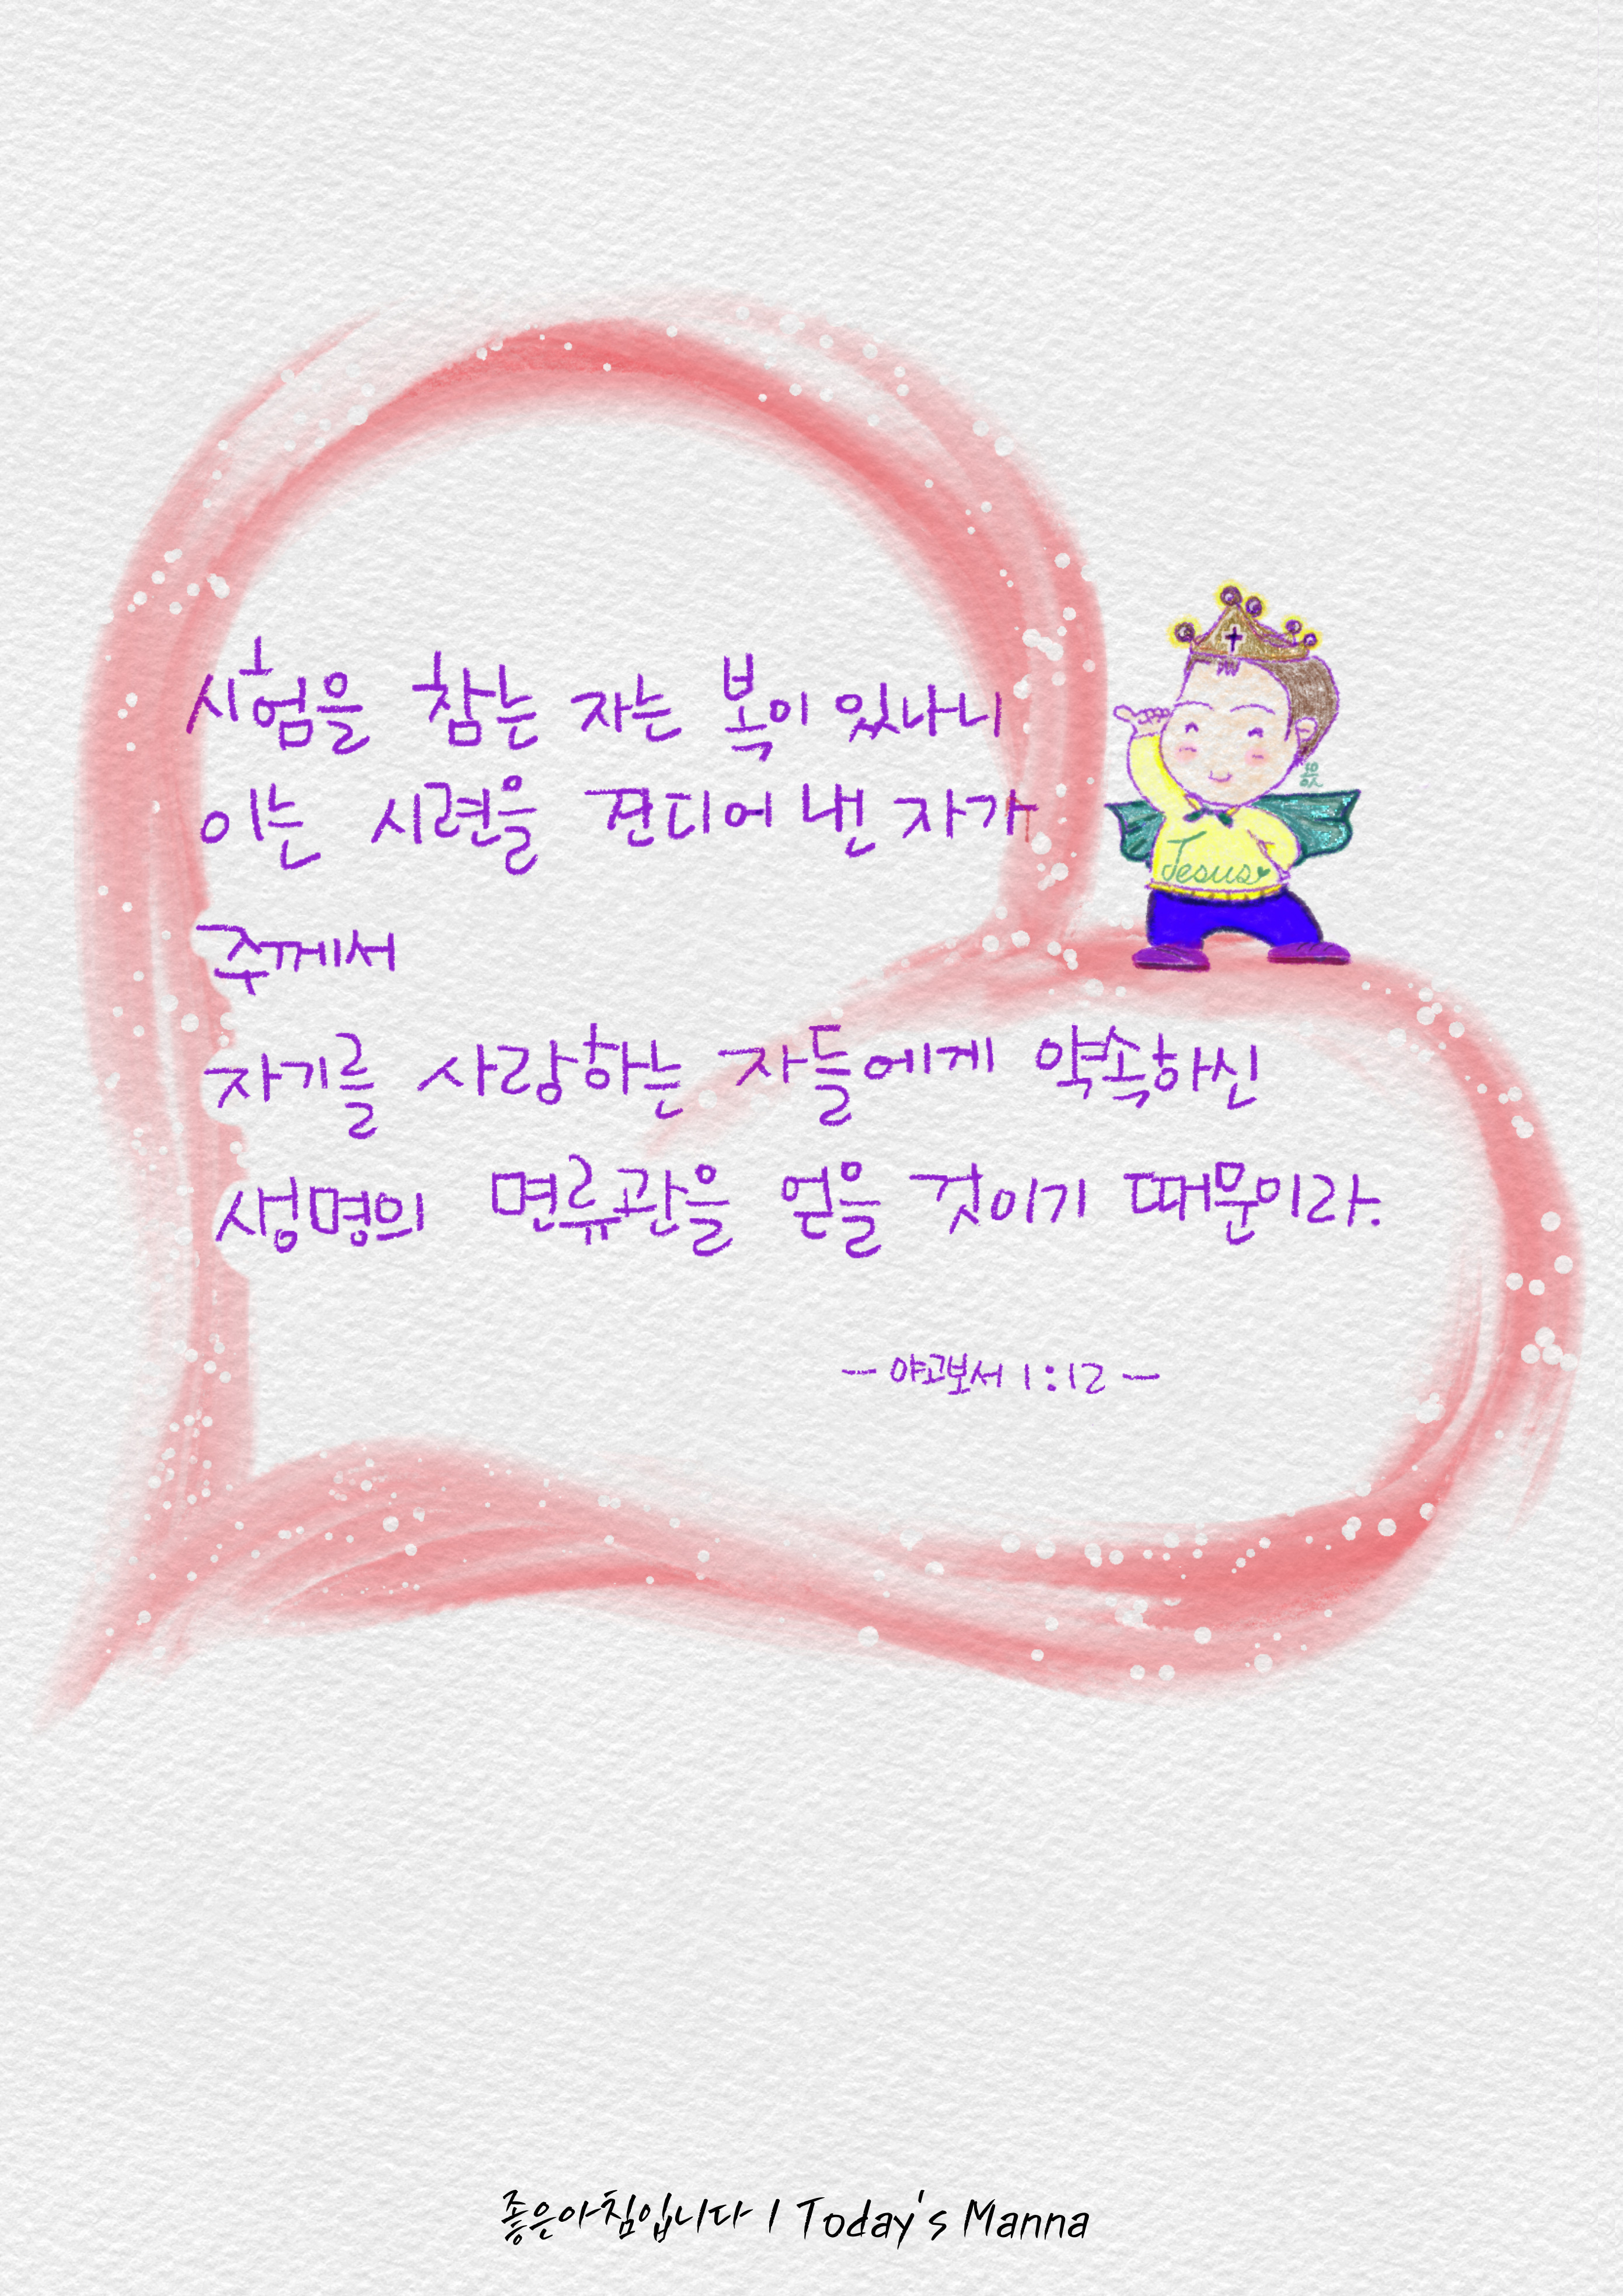 시험을 참는 자는 복이 있나니
이는 시련을 견디어 낸 자가
주께서
자기를 사랑하는 자들에게 약속하신
생명의 면류관을 얻을 것이기 때문이라.
- 야고보서 1:12 -
Jesus
좋은아침입니다 | Today's Manna